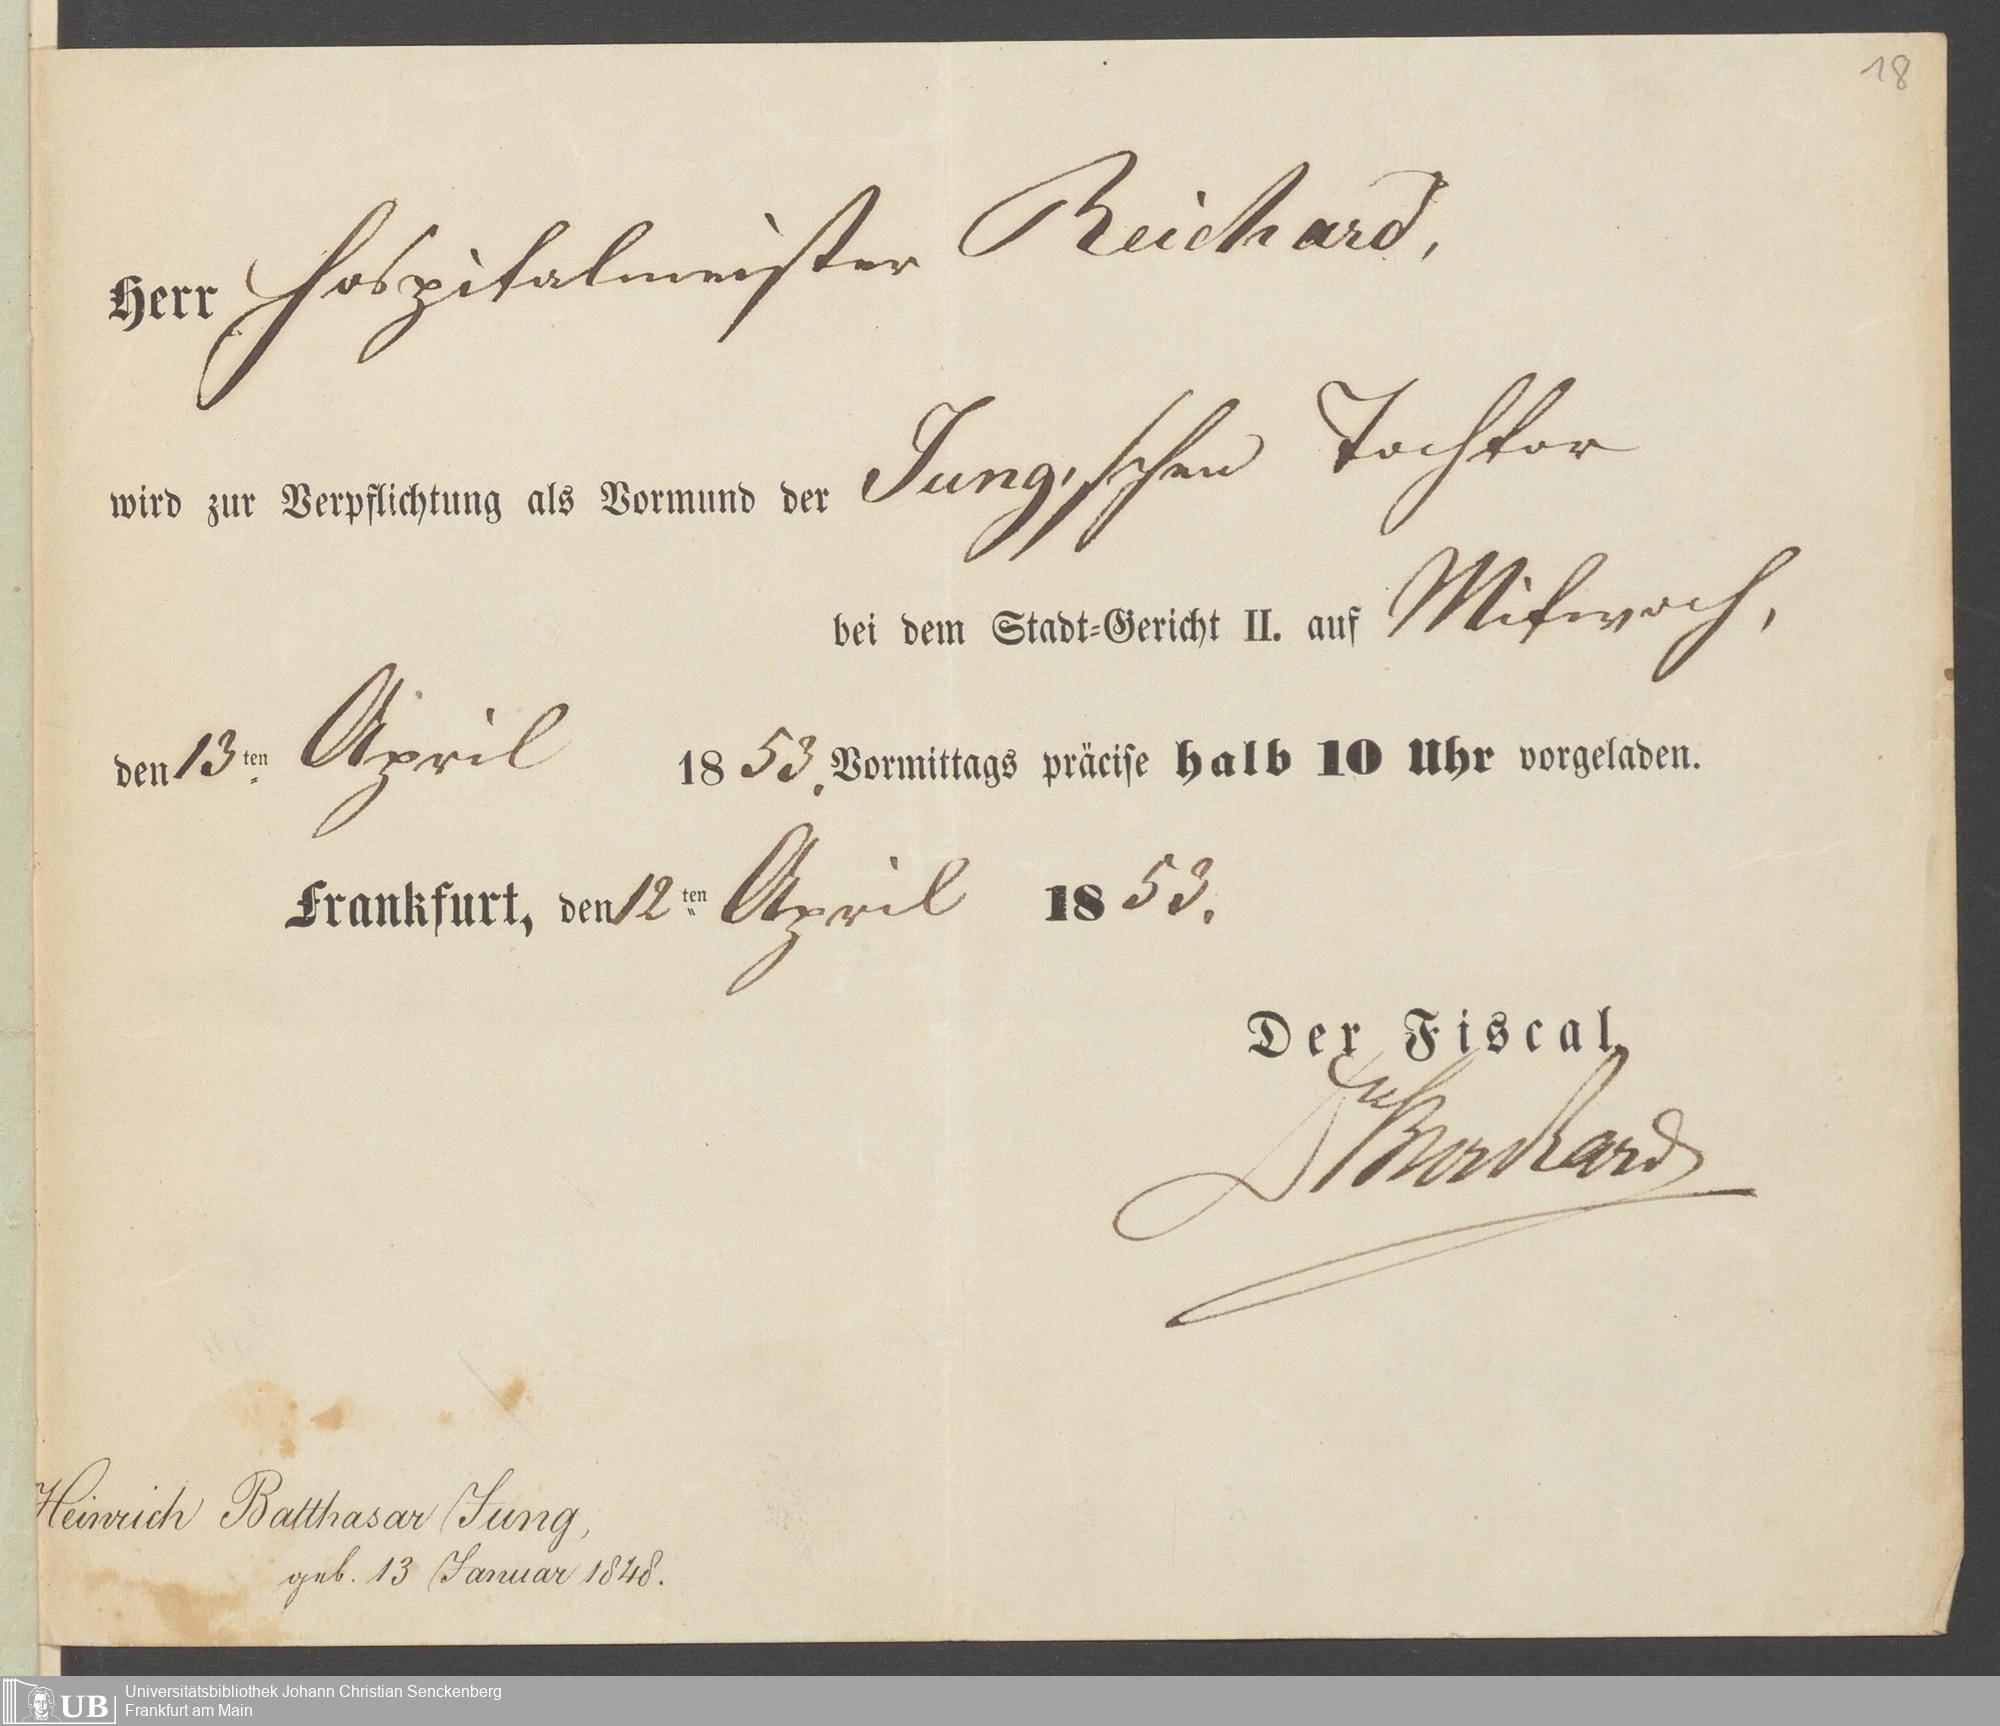 18
Herr Hospitalmeister Reichard,
wird zur Verpflichtung als Vormund der Jung'schen Tochter
bei dem Stadt-Gericht II. auf Mitwoch,
den 13ten April 1853. Vormittags präcise halb 10 Uhr vorgeladen.
Frankfurt, den 12ten April 1853.
Der Fiscal
Dr
Heinrich Balthasar Jung,
geb. 13 Januar 1848.
UB Universitätsbibliothek Johann Christian Senckenberg
Frankfurt am Main